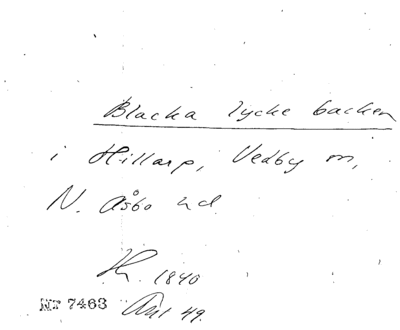 Blacka lycke backen
i Hillarp, Vedby sn,
N. Åsbo hd
1840
NT 7463 49.